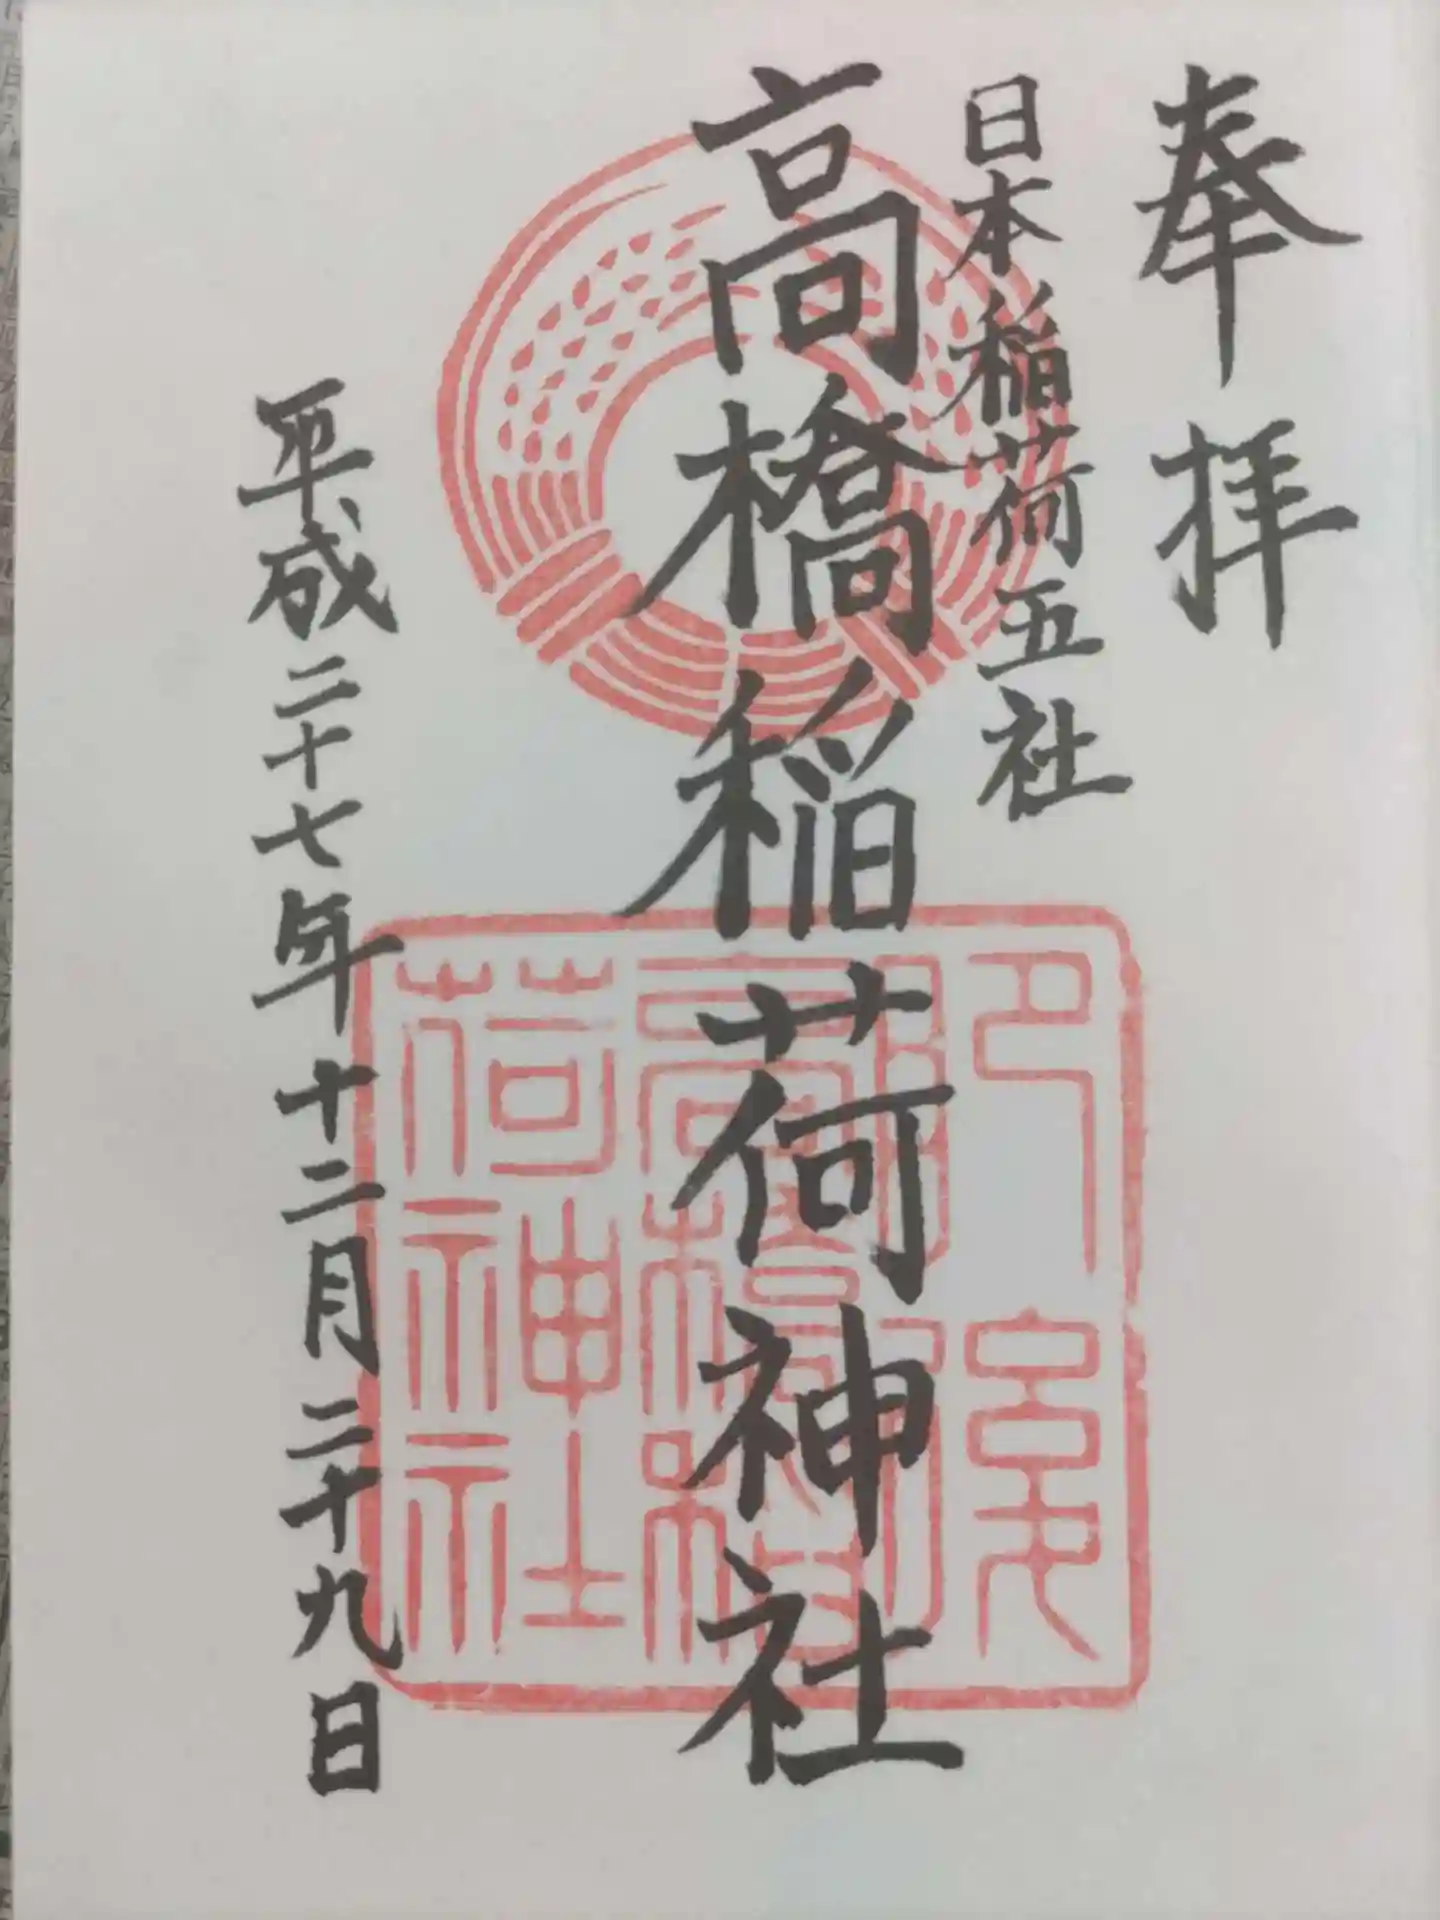 奉拝
日本稲荷五社
高橋稲荷神社
平成二十七年十二月二十九日
高橋稲
荷神社